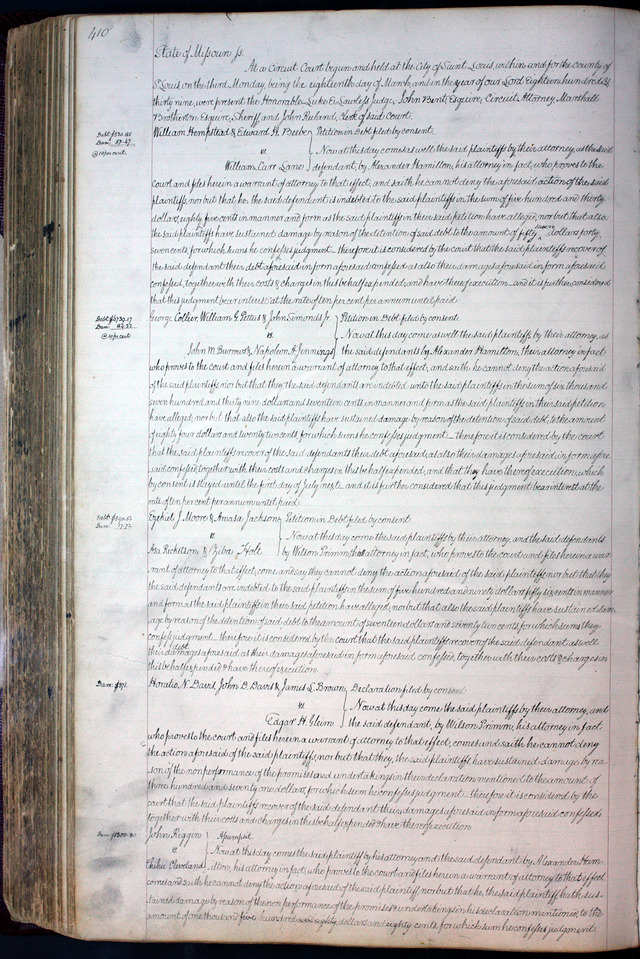 410
State of Missouri ss.
At a Circuit Court begun and held at the City of Saint Louis, within and for the county of
St Louis, on the third Monday, being the eighteenth day of March and in the year of our Lord Eighteen hundred &
thirty nine, were present the Honorable Luke E Lawless Judge, John Bent, Esquire, Circuit Attorney Marshall
Brotherton Esquire, Sheriff and John Ruland, Clerk of said Court.
William Hempstead & Edward H. Beebe Petition in Debt filed by consent.
Debt $530.85
Dam: 57.47
@ 10 per cent.
vs Now at this day comes as well the said plaintiffs by their attorney, as the said
William Carr Lane defendant, by Alexander Hamilton, his attorney in fact, who proves to the
Court and files herein a warrant of attorney to that effect, and saith he cannot deny the aforesaid action of the said
plaintiffs, nor but that he, the said defendant is indebted to the said plaintiffs in the sum of five hundred and thirty
dollars, eighty five cents in manner and form as the said plaintiffs in their said petition have alleged, nor but that also
the said plaintiffs have sustained damage by reason of the detention of said debt to the amount of fifty seven dollars forty
seven cents, for which sums he confesses judgment — therefore it is considered by the court that the said plaintiffs recover of
the said defendant their debt aforesaid in form aforesaid confessed, as also their damages aforesaid in form aforesaid
confessed, together with their costs & charges in this behalf expended, and have thereof execution — and it is further considered
that this judgment bear interest at the rate of ten per cent per annum until paid
George Collier, William G. Pettus & John Simonds Jr. Petition in Debt filed by consent.
Debt $6739.17
Dam: 84.22
@ 10 per cent
vs. Now at this day come as well the said plaintiffs, by their attorney, as
John M. Burrows & Napoleon A. Jennings the said defendants by Alexander Hamilton, their attorney in fact
who proves to the court and files herein a warrant of attorney to that effect, and saith he cannot deny the action aforesaid
of the said plaintiffs, nor but that they, the said defendants are indebted unto the said plaintiffs in the sum of six thousand
seven hundred and thirty nine dollars and seventeen cents in manner and form as the said plaintiffs in their said petition
have alleged, nor but that also the said plaintiffs have sustained damage by reason of the detention of said debt, to the amount
of eighty four dollars and twenty two cents, for which sums he confesses judgment — therefore it is considered by the court
that the said plaintiffs recover of the said defendants their debt aforesaid, as also their damages aforesaid in form afore
said confessed, together with their costs and charges in this behalf expended, and that they have thereof execution, which
by consent is stayed until the first day of July next — and it is further considered that this judgment bear interest at the
rate of ten per cent per annum until paid
Ezekiel J. Moore & Amasa Jackson, Petition in Debt filed by consent
vs Now at this day come the said plaintiffs by their attorney, and the said defendants
Asa Ricketson & Ziba Holt by Wilson Primm, their attorney in fact, who proves to the court and files herein a war
rant of attorney to that effect, come and say they cannot deny the action aforesaid of the said plaintiffs, nor but that they
the said defendants are indebted to the said plaintiffs in the sum of five hundred and ninety dollars fifty six cents in manner
and form as the said plaintiffs in their said petition have alleged, nor but that also the said plaintiffs have sustained dam
age by reason of the detention of said debt to the amount of seventeen dollars and seventy two cents, for which sums they
confess judgment. therefore it is considered by the court that the said plaintiffs recover of the said defendants as well
their debt aforesaid as their damages aforesaid in form aforesaid confessed, together with their costs & charges in
this behalf expended & have thereof execution.
Horatio N. Davis, John D. Davis & James L. Brown, Declaration filed by consent
Dam: $371.
vs Now at this day come the said plaintiffs by their attorney, and
Edgar H. Gleim the said defendant, by Wilson Primm, his attorney in fact
who proves to the court and files herein a warrant of attorney to that effect, comes and saith he cannot deny
the action aforesaid of the said plaintiffs, nor but that they, the said plaintiffs, have sustained damage by rea
son of the non performance of the promises and undertakings in their declaration mentioned to the amount of
three hundred and seventy one dollars, for which sum he confesses judgment. therefore it is considered by the
court that the said plaintiffs recover of the said defendant their damages aforesaid in form aforesaid confessed,
together with their costs and charges in this behalf expended & have thereof execution
John Riggin Assumpsit
vs Now at this day comes the said plaintiff by his attorney and the said defendant by Alexander Ham
Cleveland ilton, his attorney in fact, who proves to the court and files herein a warrant of attorney to that effect
comes and saith he cannot deny the action aforesaid of the said plaintiff nor but that he, the said plaintiff hath sus
tained damage by reason of the non performance of the promises & undertakings in his declaration mentioned, to the
amount of one thousand five hundred and eighty dollars and eighty cents, for which sum he confesses judgment